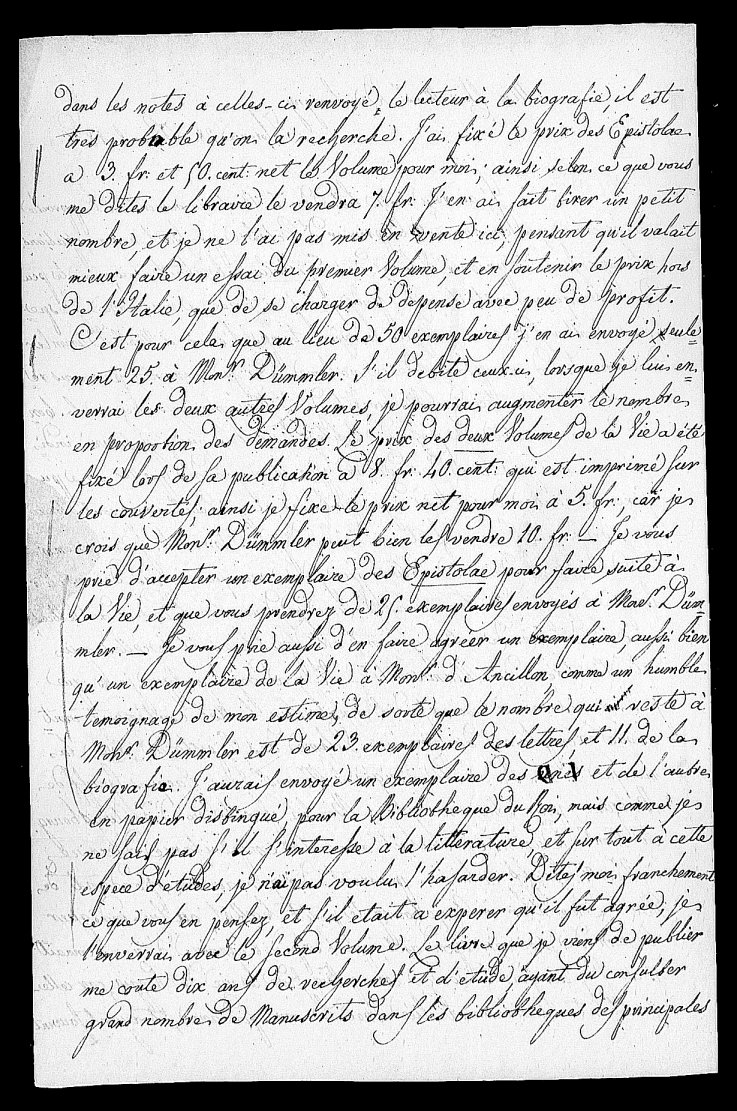 dans les notes à celles-ci renvoyé le lecteur à la biografie, il est
tres probable qu'on la recherche. J'ai fixé le prix des Epistolae
a 3. fr. et 50. cent. net le Volume pour moi; ainsi selon ce que vous
me dites le libraire le vendra 7. fr. J'en ai fait tirer un petit
nombre, et je ne l'ai pas mis en vente ici, pensant qu'il valait
mieux faire un essai du premier Volume, et en soutenir le prix hors
de l'Italie, que de se charger de depense avec peu de profit.
C'est pour cela que au lieu de 50 exemplaires j'en ai envoyé seule-
ment 25. à Monsr. Dümmler. S'il debite ceux-ci, lorsque je lui en-
verrai les deux autres Volumes, je pourrai augmenter le nombre
en proportion des demandes. Le prix des deux Volumes de la Vie a été
fixé lors de sa publication à 8. fr. 40. cent: qui est imprimé sur
les couvertes; ainsi je fixe le prix net pour moi à 5. fr., car je
crois que Monsr. Dümmler peut bien les vendre 10. fr. — Je vous
prie d'accepter un exemplaire des Epistolae pour faire suite à
la Vie, et que vous prendrez de 25. exemplaires envoyés à Monsr. Düm-
mler. — Je vous prie aussi d'en faire agréer un exemplaire, aussi bien
qu'un exemplaire de la Vie à Monsr. d'Ancillon comme un humble
temoignage de mon estime, de sorte que le nombre qui reste à
Monsr. Dümmler est de 23. exemplaires des lettres et 11. de la
biografie. J'aurais envoyé un exemplaire des unes et de l'autre
en papier distingué, pour la Bibliotheque du Roi, mais comme je
ne sais pas s'il s'interesse à la litterature, et sur tout à cette
espece d'etudes, je n'ai pas voulu l'hasarder. Dites moi franchement
ce que vous en pensez, et s'il etait a experer qu'il fut agrée, je
l'enverrai avec le second Volume. Le livre que je viens de publier
me coute dix ans de recherches et d'etude, ayant du consulter
grand nombre de Manuscrits dans les bibliotheques des principales